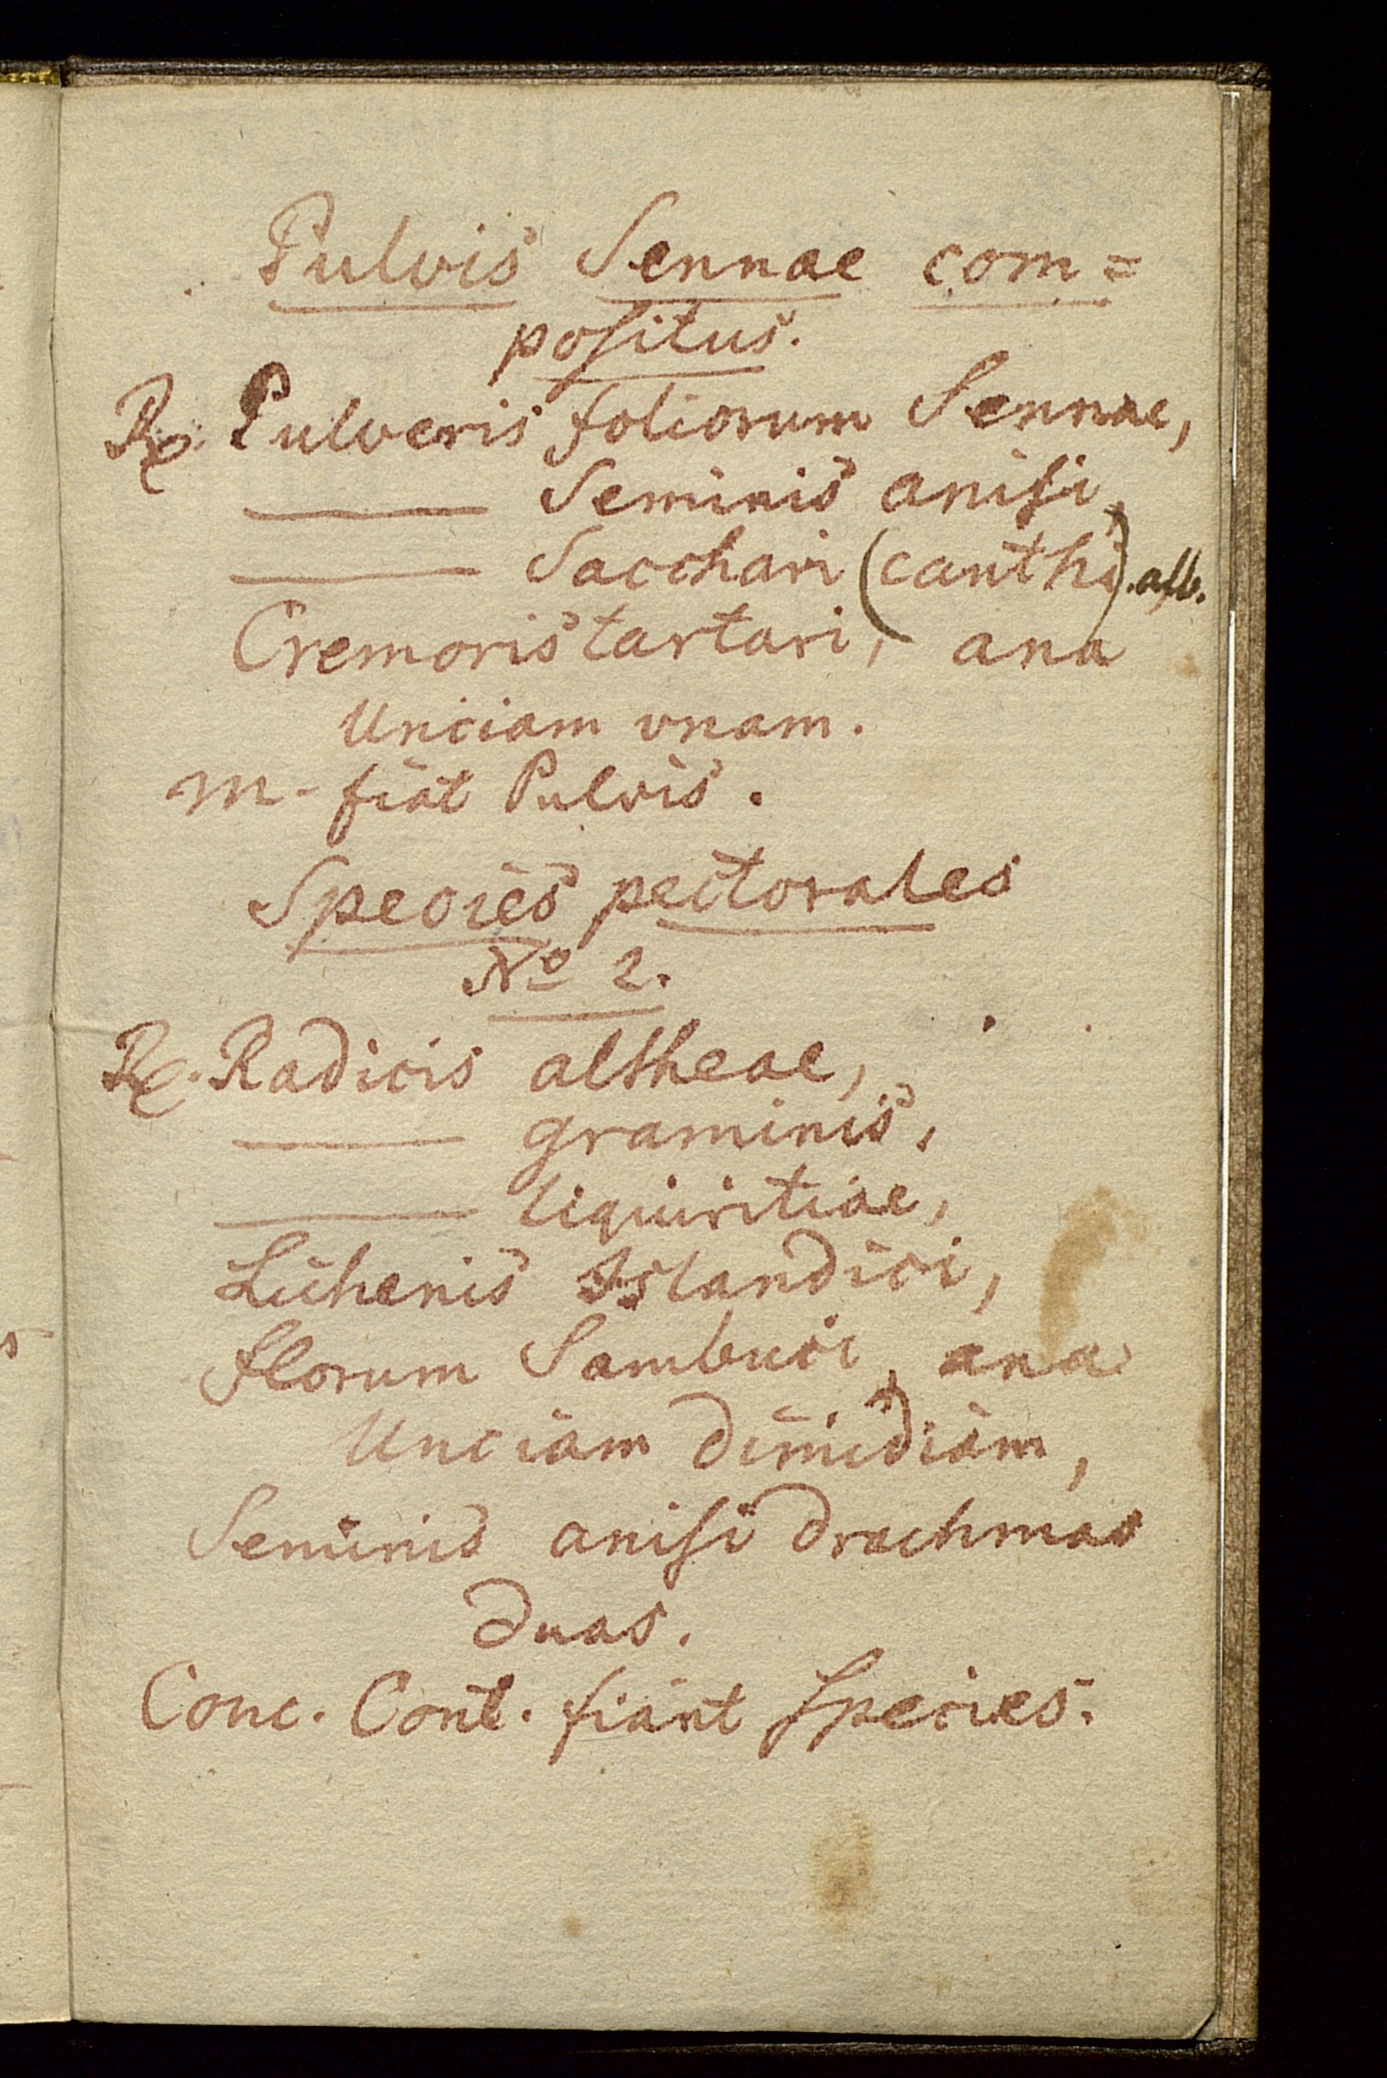 Pulvis Sennae com=
positus.
Rx. Pulveris foliorum Sennae,
——— Seminis anisi,
——— Sacchari (canthi). alb.
Cremoris tartari, ana
Unciam vnam.
M. fiat Pulvis.
Species pectorales
No 2.
Rx. Radicis altheae,
——— graminis,
——— liquiritiae,
Lichenis Islandici,
florum Sambuci, ana
Unciam dimidiam,
Seminis anisi drachmas
duas.
Conc. Cont. fiant Species.